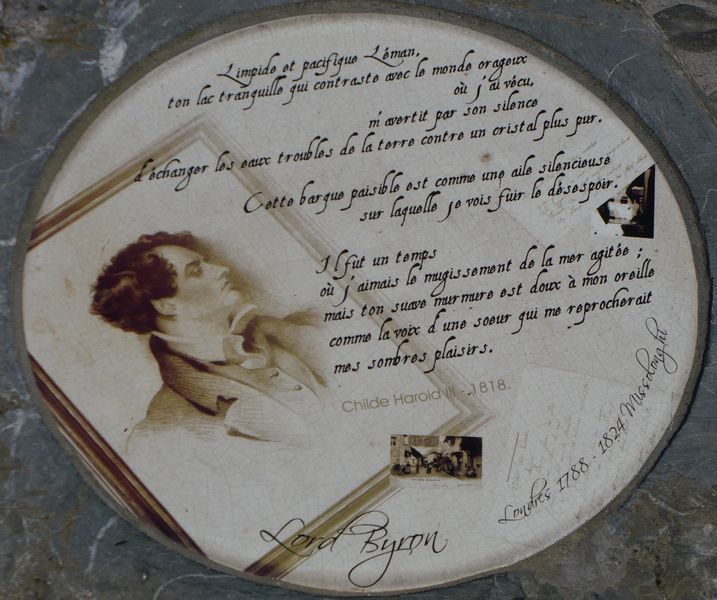 Limpide et pacifique Léman,
ton lac tranquille qui contraste avec le monde orageux
où j'ai vécu,
m'avertit par son silence
d'échanger les eaux troubles de la terre contre un cristal plus pur.
Cette barque paisible est comme une aile silencieuse
sur laquelle je vois fuir le désespoir.
Il fut un temps
où j'aimais le mugissement de la mer agitée ;
mais ton suave murmure est doux à mon oreille
comme la voix d'une soeur qui me reprocherait
mes sombres plaisirs.
Childe Harold III - 1818.
Londres 1788 - 1824 Missolonghi
Lord Byron